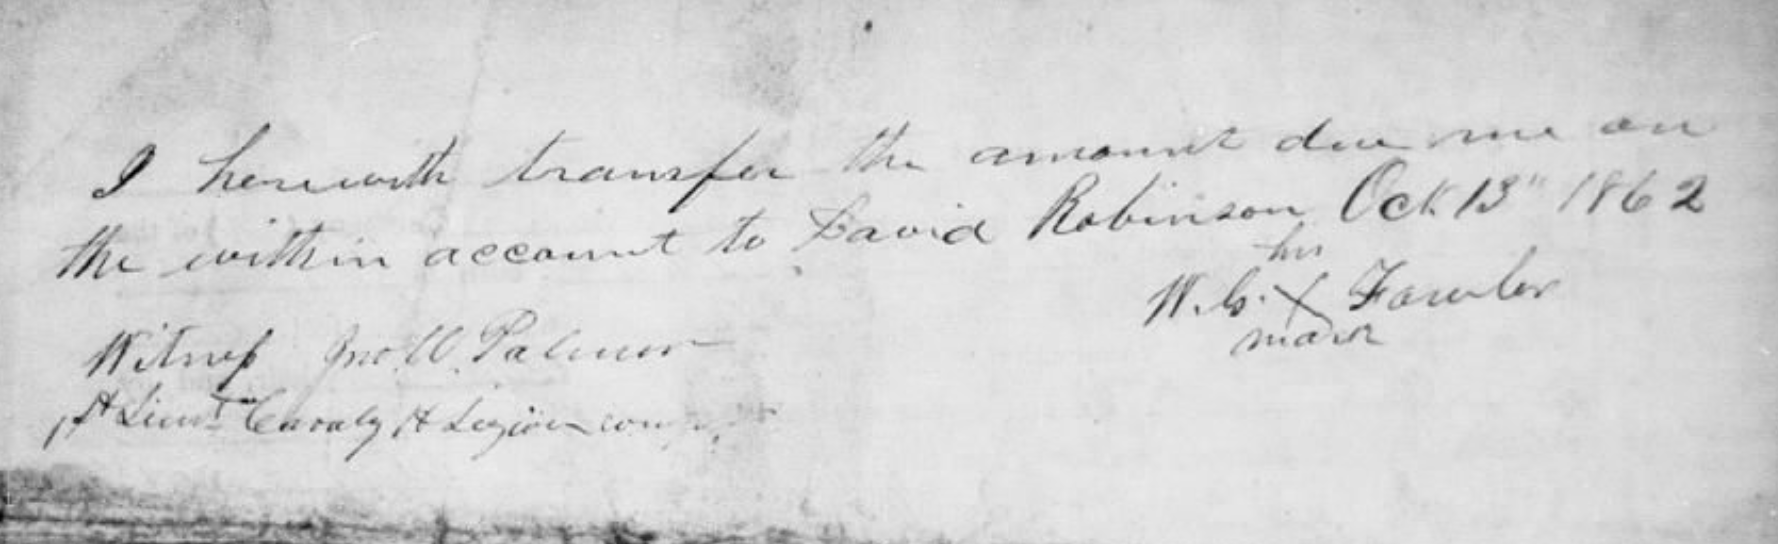 I herewith transfer the amount due me on
the within account to David Robinson Oct 13" 1862
his
W. G. X Fowler
mark
Witness Jno W. Palmer
1st Lieut Cavalry H Legion